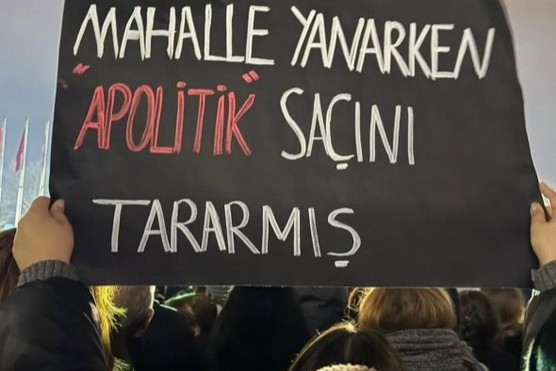 MAHALLE YANARKEN
"APOLİTİK" SAÇINI
TARARMIŞ